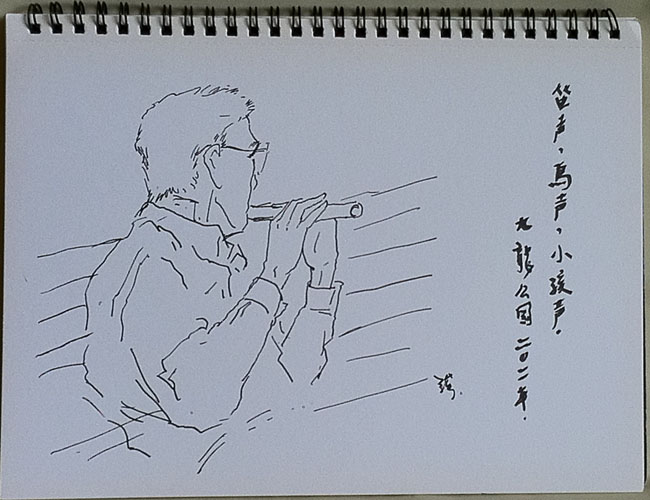 笛声，鳥声，小孩声。
九龍公园二〇一一年.